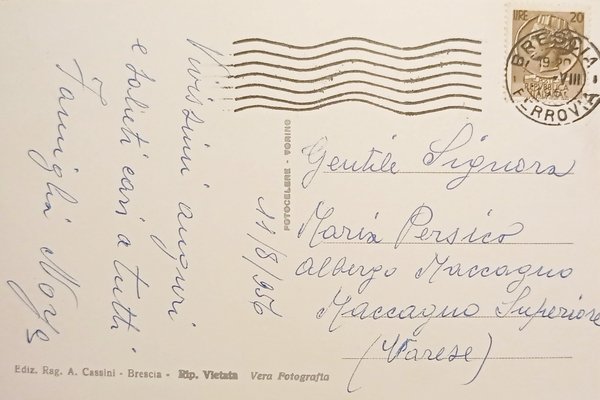 Vivissimi auguri
e saluti cari a tutti
Famiglia Noys
11/8/956
FOTOCELERE - TORINO
LIRE 20
BRESCIA
FERROVIA
19
VIII
Gentile Signora
Maria Persico
Albergo Maccagno
Maccagno Superiore
(Varese)
Ediz. Rag. A. Cassini - Brescia - Rip. Vietata Vera Fotografia